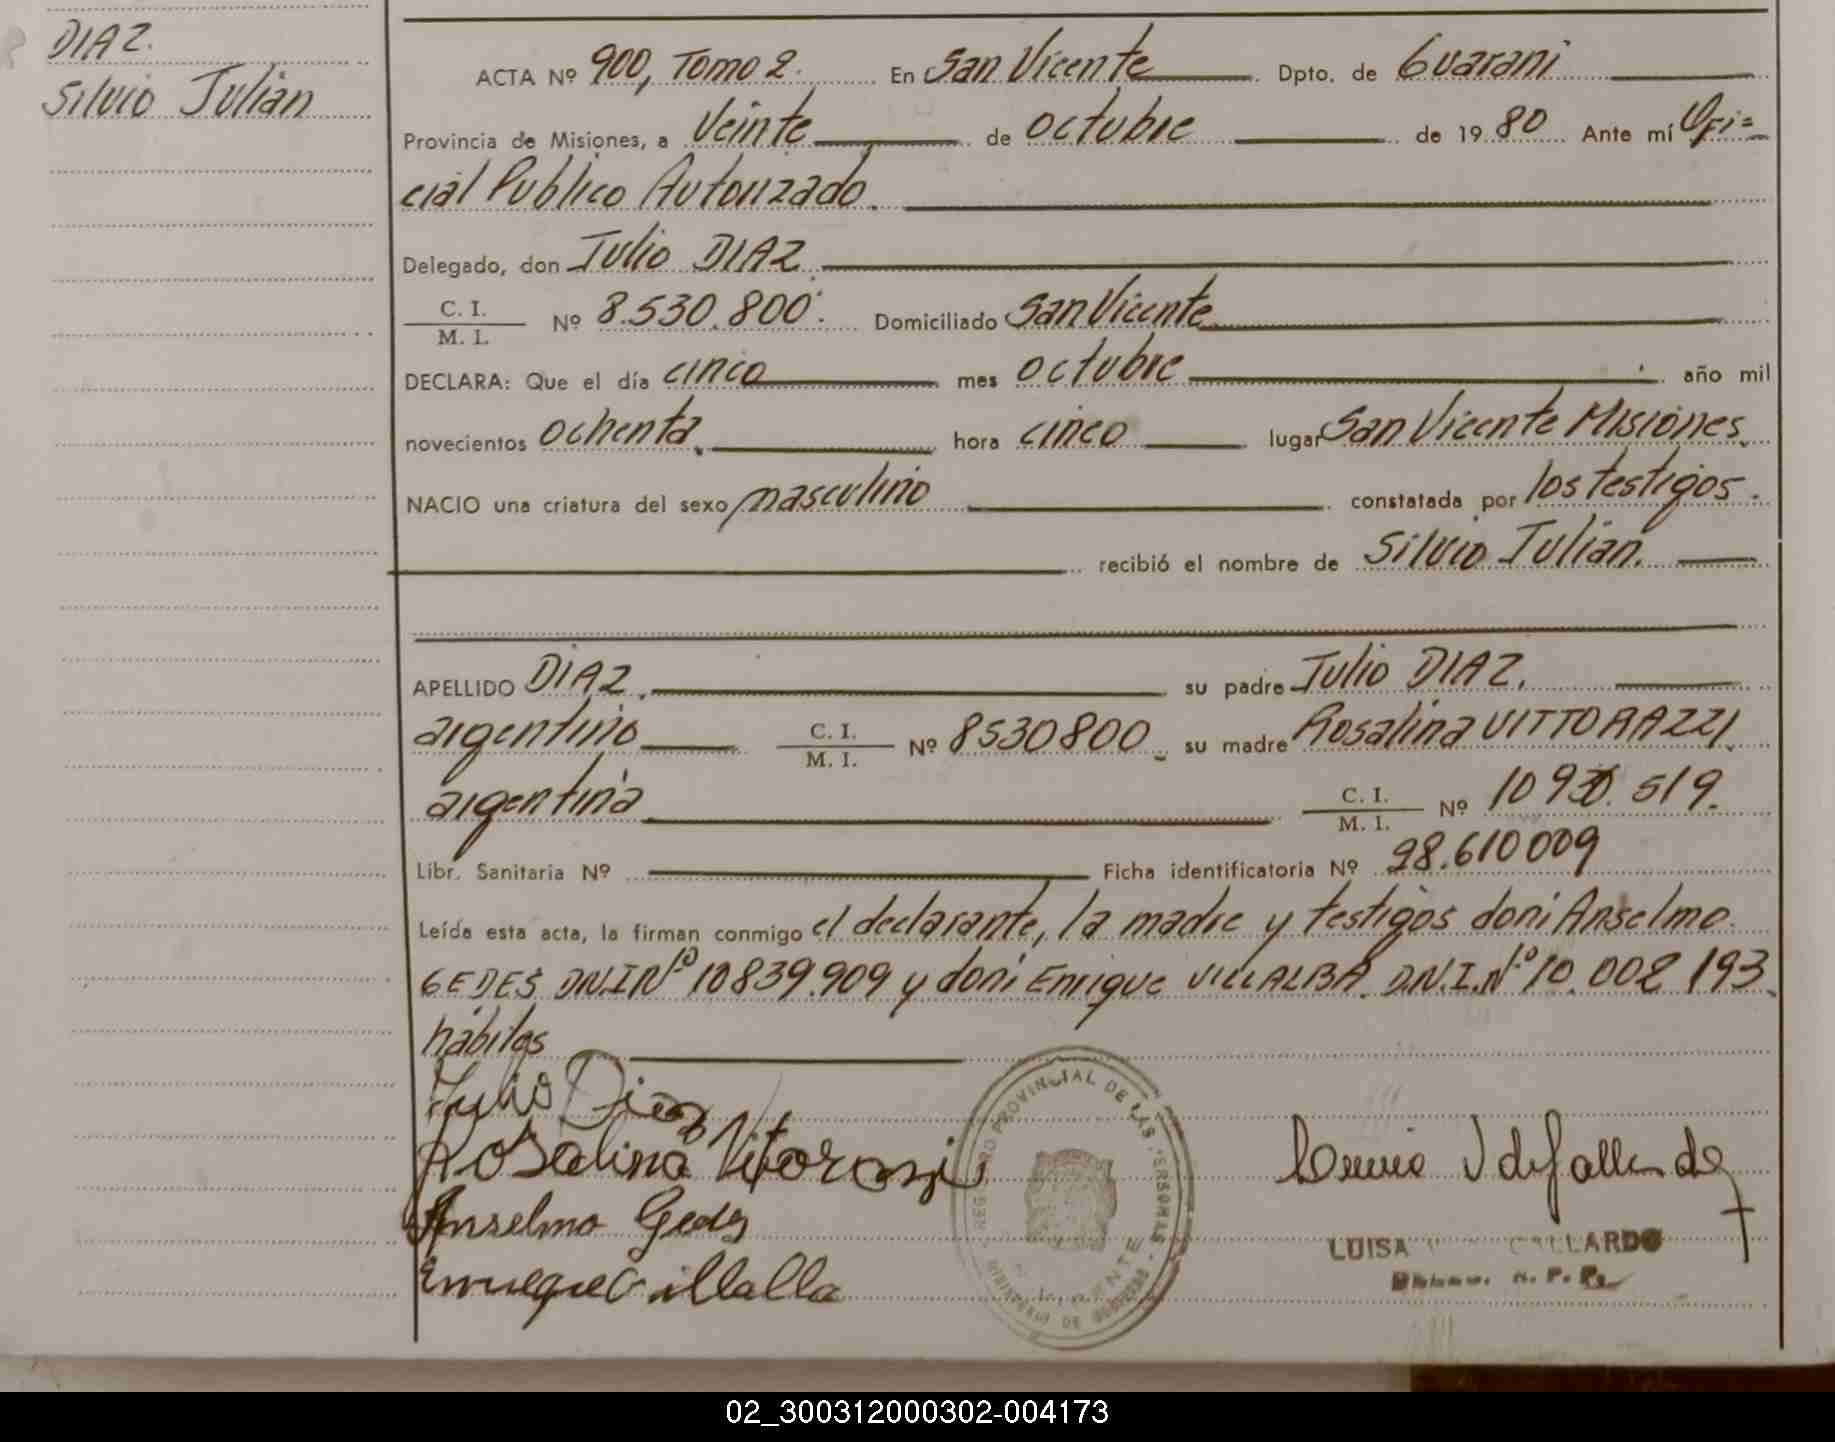 DIAZ.
Silvio Julian
ACTA Nº 900, Tomo 2. En San Vicente Dpto. de Guarani
Provincia de Misiones, a Veinte de octubre de 19 80 Ante mí Ofi=
cial Publico Autorizado.
Delegado, don Julio DIAZ.
C. I.
M. I.
Nº 8.530.800. Domiciliado San Vicente
DECLARA: Que el día cinco mes octubre año mil
novecientos ochenta. hora cinco lugar San Vicente Misiones.
NACIO una criatura del sexo masculino constatada por los testigos.
recibió el nombre de Silvio Julian.
APELLIDO DIAZ. su padre Julio DIAZ.
argentino C. I. M. I. Nº 8530800. su madre Rosalina VITTORAZZI.
argentina C. I. M. I. Nº 519.
Libr. Sanitaria Nº Ficha identificatoria Nº 28.610009
Leída esta acta, la firman conmigo el declarante, la madre y testigos don: Anselmo
GEDES, DNI Nº 10839.909 y don: Enrique VILLALBA. D.N.I. Nº 10.002 193.
hábiles
Julio Diaz
Rosalina Vitorazzi
Anselmo Gedes
Enrique Villalba
REGISTRO PROVINCIAL DE LAS PERSONAS
MINISTERIO DE GOBIERNO
LUISA GALLARDO
02_300312000302-004173